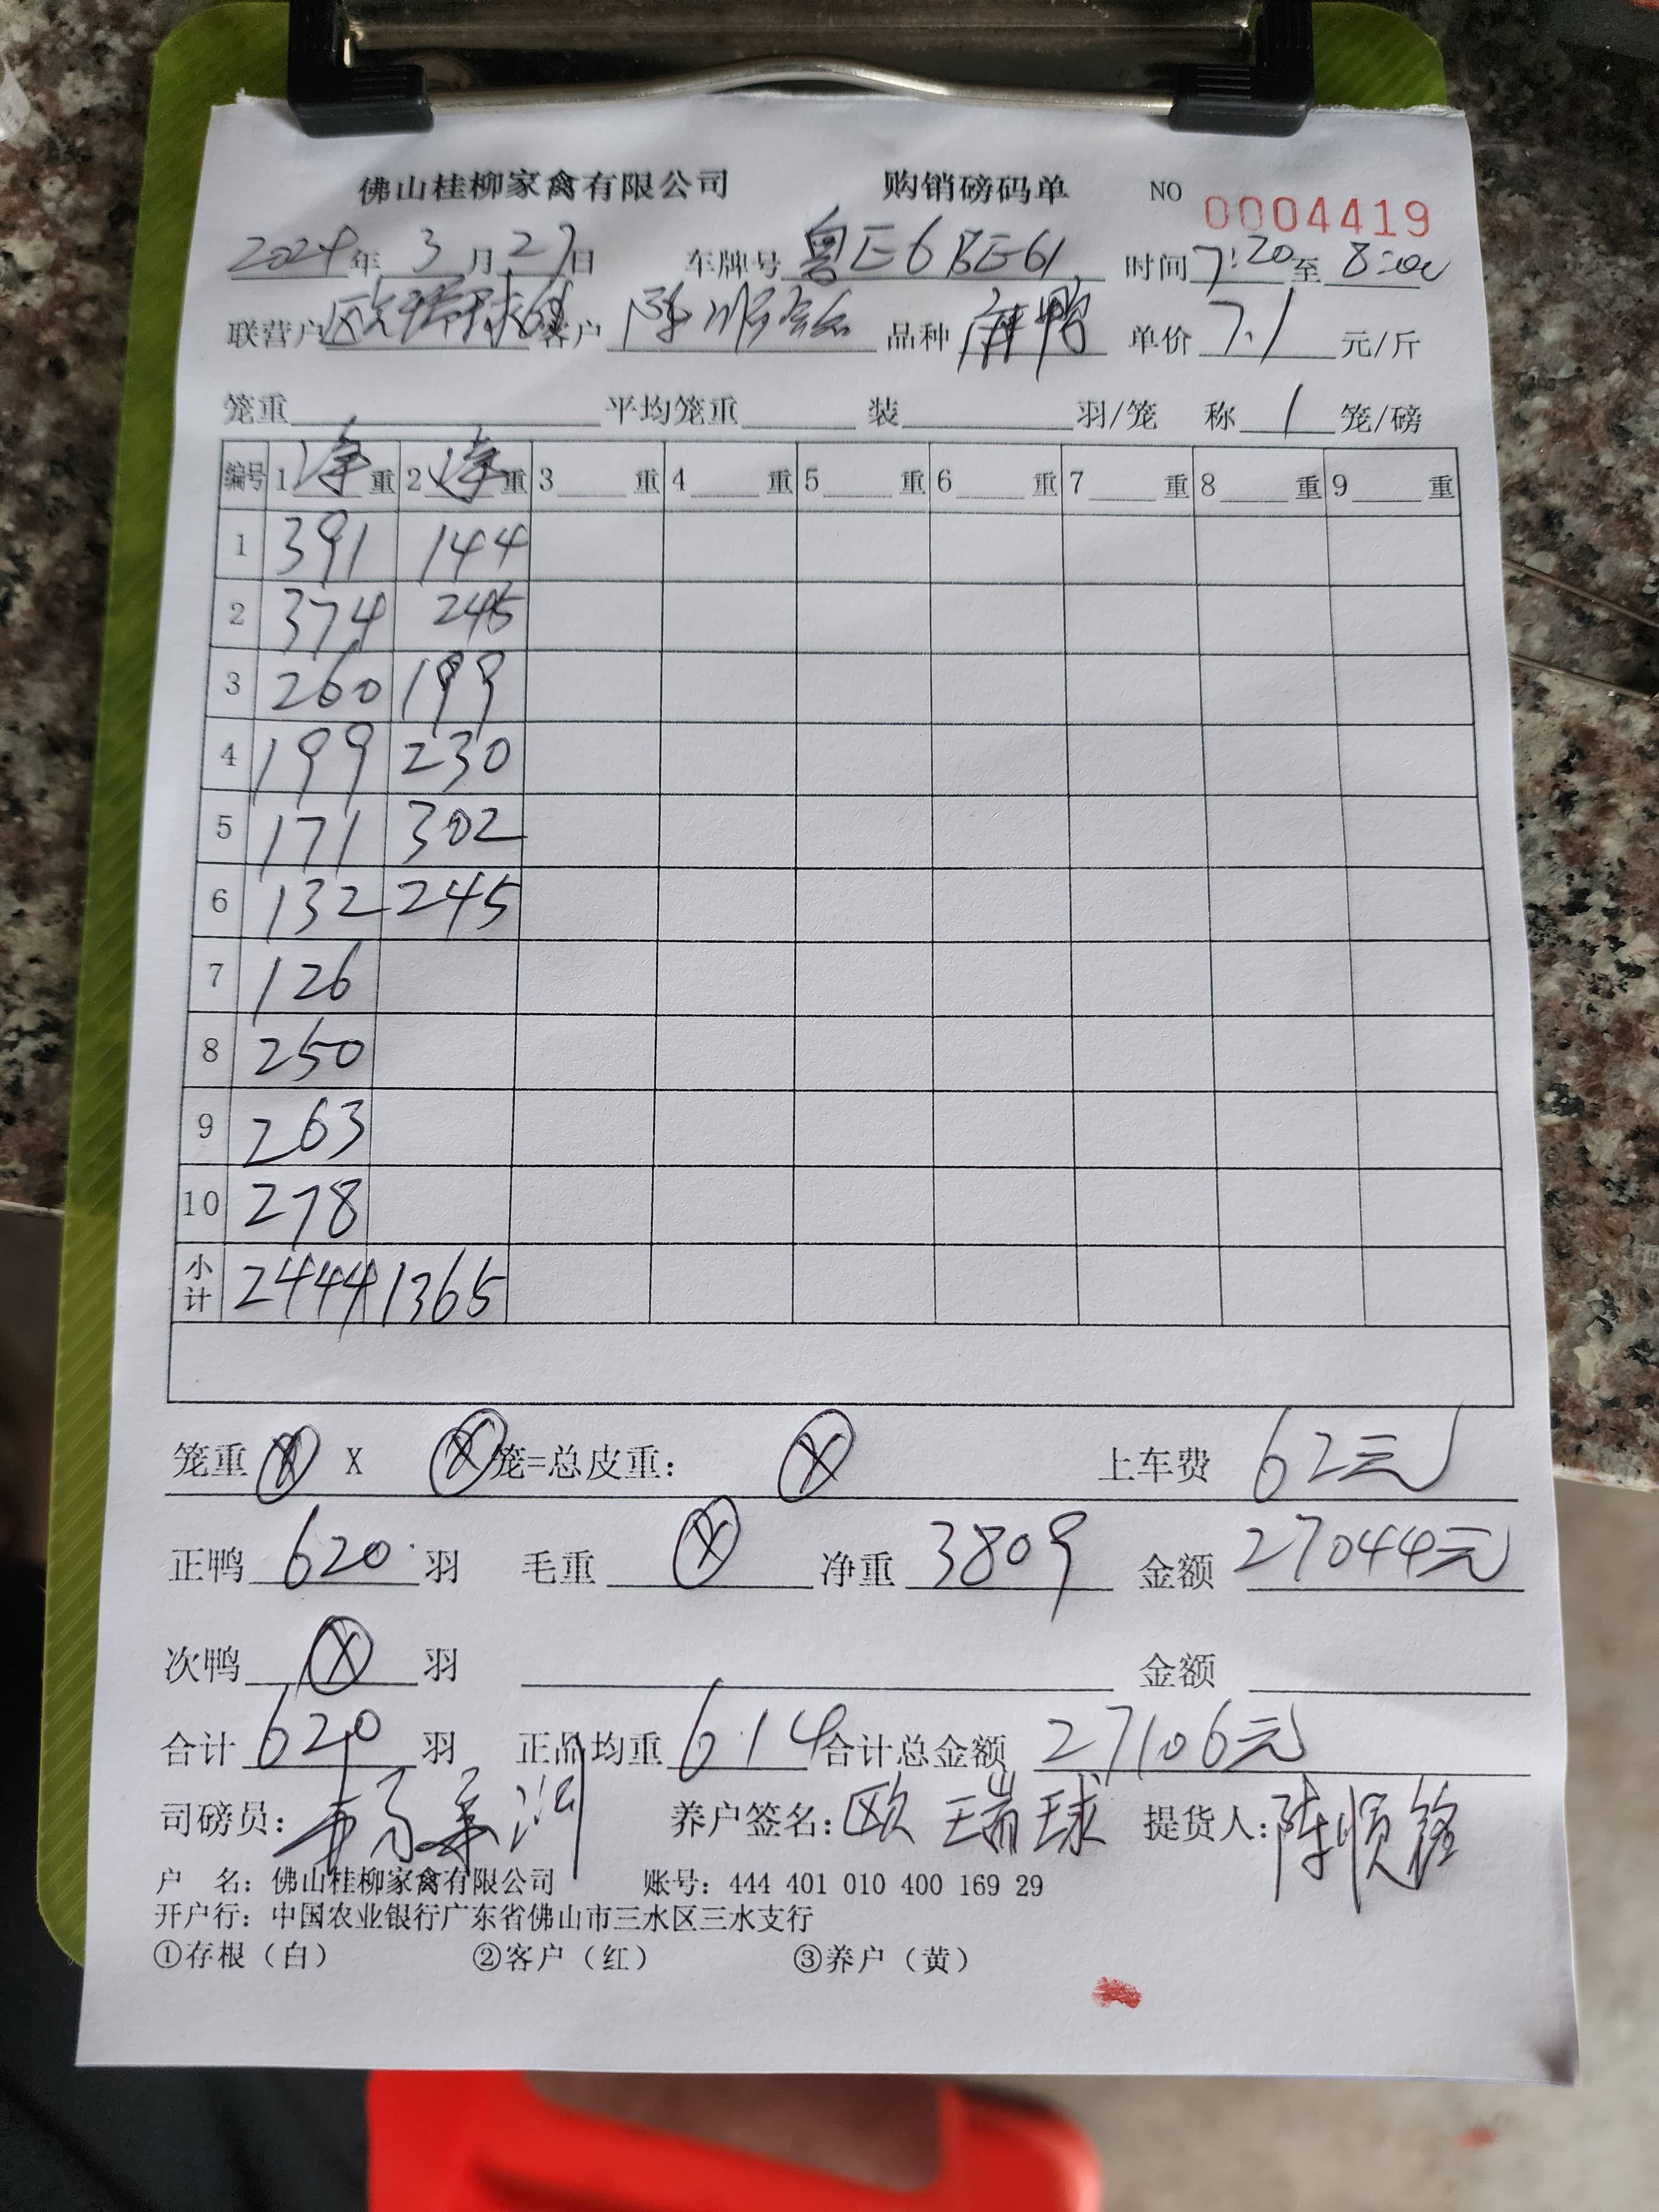 佛山桂柳家禽有限公司 购销磅码单 NO 0004419
2024年 3 月 27日 车牌号 粤E6BE61 时间 7:20 至 8:00
联营户 欧瑞球 客户 陈顺 品种 麻鸭 单价 7.1 元/斤
笼重 平均笼重 装 羽/笼 称 1 笼/磅
编号 1 净 重 2 净 重 3 重 4 重 5 重 6 重 7 重 8 重 9 重
1 391 144
2 374 245
3 260 199
4 199 230
5 171 302
6 132 245
7 126
8 250
9 263
10 278
小计 2444 1365
笼重 X 笼=总皮重: 上车费 62元
正鸭 620 羽 毛重 净重 3809 金额 27044元
次鸭 羽 金额
合计 620 羽 正品均重 6.14 合计总金额 27106元
司磅员: 养户签名: 欧瑞球 提货人: 陈顺
户 名: 佛山桂柳家禽有限公司 账号: 444 401 010 400 169 29
开户行: 中国农业银行广东省佛山市三水区三水支行
①存根（白） ②客户（红） ③养户（黄）